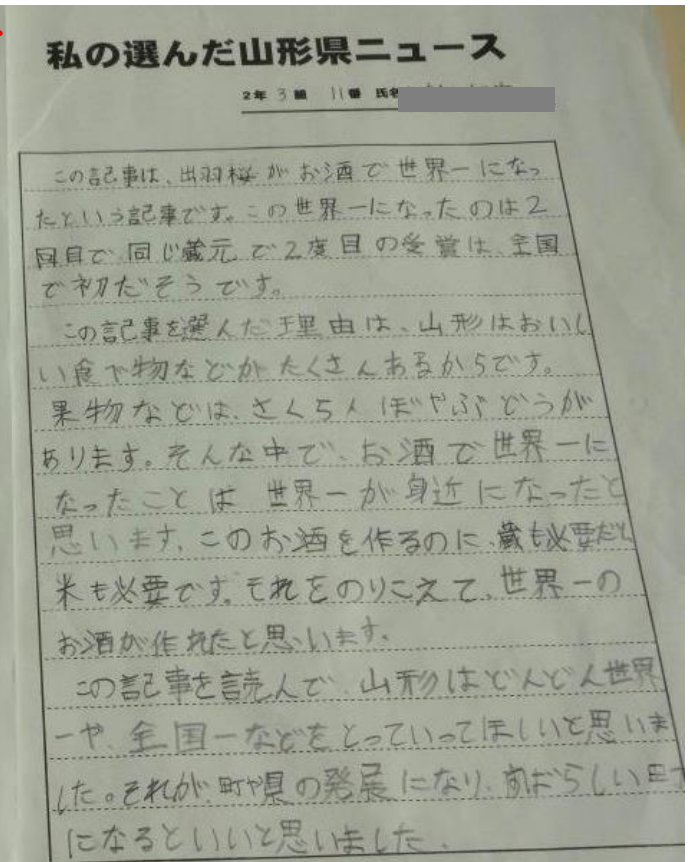 私の選んだ山形県ニュース
2年 3組 11番 氏名
この記事は、出羽桜がお酒で世界一になっ
たという記事です。この世界一になったのは2
回目で、同じ蔵元で2度目の受賞は、全国
で初だそうです。
この記事を選んだ理由は、山形はおいし
い食べ物などがたくさんあるからです。
果物などは、さくらんぼやぶどうが
あります。そんな中で、お酒で世界一に
なったことは世界一が身近になったと
思います。このお酒を作るのに、蔵も必要だし
米も必要です。それをのりこえて、世界一の
お酒が作れたと思います。
この記事を読んで、山形はどんどん世界
一や、全国一などをとっていってほしいと思いま
した。それが、町や県の発展になり、すばらしい
になるといいと思いました。